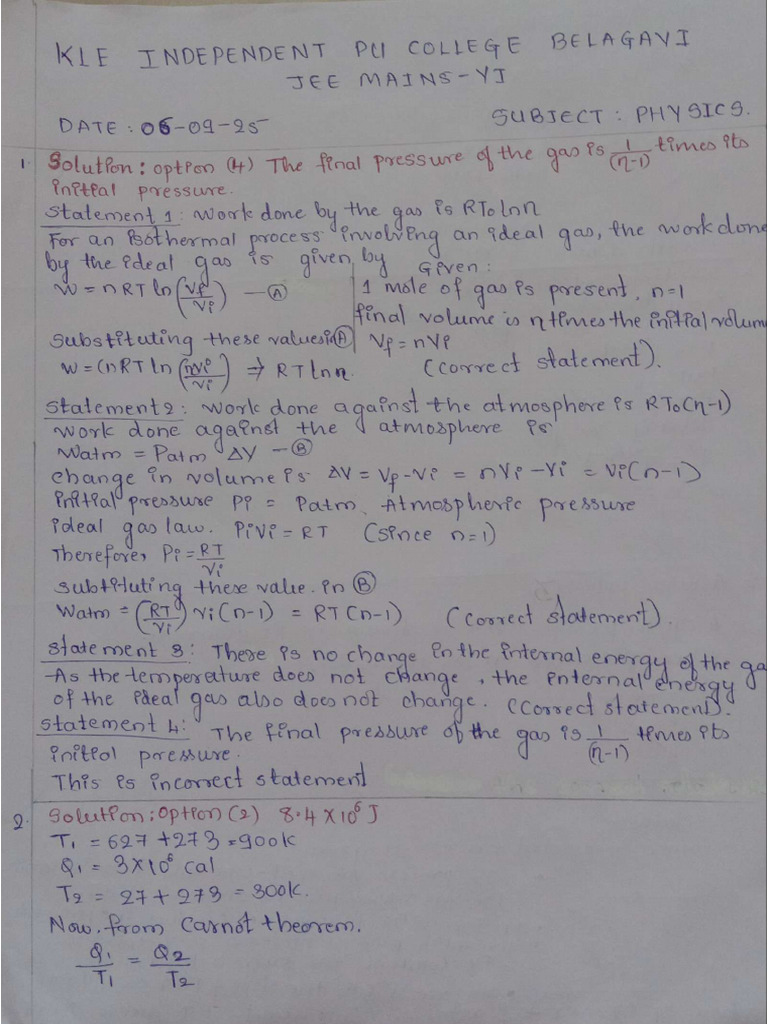 KLE INDEPENDENT PU COLLEGE BELAGAVI
JEE MAINS-VI
DATE: 06-09-25 SUBJECT: PHYSICS.
1. Solution: option (4) The final pressure of the gas is 1/(n-1) times its
initial pressure.
Statement 1: Work done by the gas is RT₀ ln n
For an isothermal process involving an ideal gas, the work done
by the ideal gas is given by
Given:
W = nRT ln (Vf/Vi) —(A)
1 mole of gas is present, n=1
final volume is n times the initial volume
Substituting these values in (A)
Vf = nVi
W = (nRT ln (nVi/Vi) ⇒ RT ln n.
(correct statement).
Statement 2: work done against the atmosphere is RT₀(n-1)
work done against the atmosphere is
Watm = Patm ΔV —(B)
change in volume is ΔV = Vf-Vi = nVi-Vi = Vi(n-1)
initial pressure Pi = Patm, Atmospheric pressure
ideal gas law. PiVi = RT (since n=1)
Therefore, Pi = RT/Vi
substituting these value. in (B)
Watm = (RT/Vi) Vi(n-1) = RT(n-1) (correct statement).
Statement 3: There is no change in the internal energy of the ga
-As the temperature does not change, the internal energy
of the ideal gas also does not change. (correct statement).
Statement 4: The final pressure of the gas is 1/(n-1) times its
initial pressure.
This is incorrect statement
2. Solution: Option (2) 8.4×10⁶ J
T₁ = 627 + 273 = 900K
Q₁ = 3×10⁶ cal
T₂ = 27 + 273 = 300K.
Now. from Carnot theorem.
Q₁/T₁ = Q₂/T₂